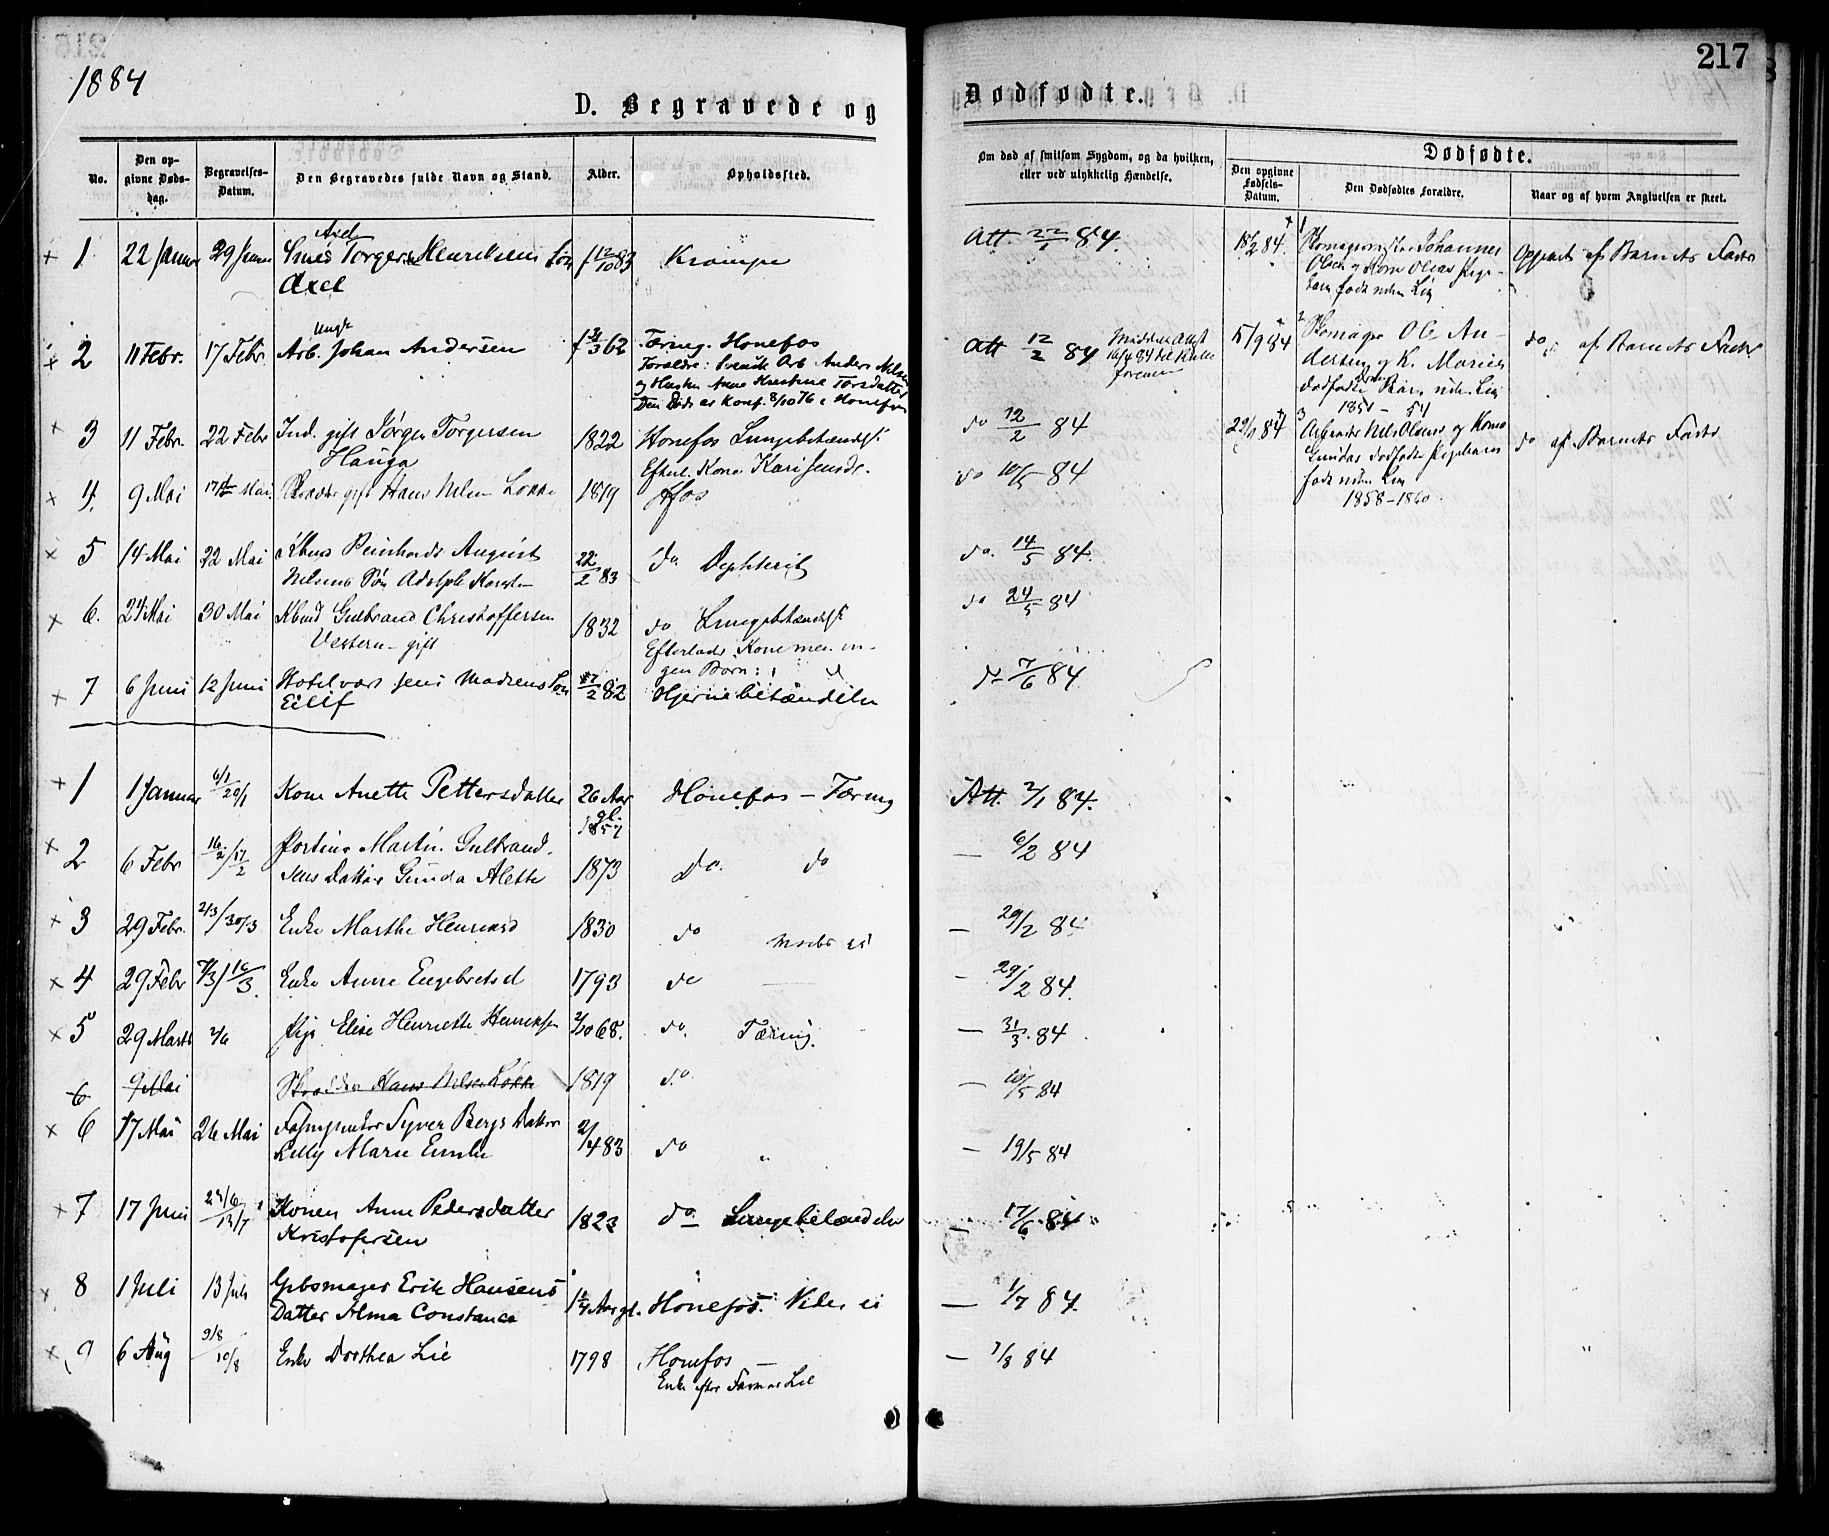 217
1884
D. Begravede og
Dødfødte.
No.
Den opgivne Dødsdag.
Begravelses-Datum.
Den Begravedes fulde Navn og Stand.
Alder.
Opholdssted.
Om død af smitsom Sygdom, og da hvilken, eller ved ulykkelig Hændelse.
Dødfødte.
Den opgivne Fødsels-Datum.
Den Dødfødtes Forældre.
Naar og af hvem Angivelsen er skeet.
1 22 Januar 29 Januar Axel Smed Torger Henriksens Søn f 12/10 83 Krampe Att. 22/1 84.
Axel
2 11 Febr. 17 Febr. Ungk Arb. Johan Andersen Tæring. Hønefos Att 12/2 84
Forældre: Svensk Arb Anders
og Hustru Anne Kirstine Torsdatter
Den Døde er Konf. 8/10 76 i Hønefos
3 11 Febr. 22 Febr Ind. gift Jørgen Torgersen 1822 Hønefos Lungebetændelse do 12/2 84
Hauga Efterl. Kone Kari
4. 9 Mai 17 Mai gift Hans Nilsen Løkke 1819 Hfos do 10/5 84
5 14 Mai 22 Mai Reinhardt August 22/2 83 do Dyphterit do. 14/5 84.
Nilsens Søn Adolph
6. 24 Mai 30 Mai Gulbrand Christoffersen 1832 do Lungebetændelse do 24/5 84
Vestern - gift Efterlader Kone men in-
gen Børn
7 6 Juni 12 Juni Hotelvært Jens Madsens Søn 27/2 82 Hjernebetændelse do 7/6 84
Eilif
1 18/2 84. Skomagermester Johannes Opgivet af Barnets Fader
Olsen og Kone Olias Pige-
barn født uden Liv
2 15/9 84 Skomager Ole An- do af Barnets Fader
dersen og K. Maries
dødfødte Barn uden Liv
1851 - 54
3 29/ 84 Arbeider Nils Olsens og Kone do af Barnets Fader
Gundas dødfødte Pigebarn
født uden Liv
1858-1860.
1 1 Januar 6/1 20/1 Kone Anette Pettersdatter 26 Aar gl. Hønefos - Tæring Att. 2/1 84.
1857
2 6 Febr 16/2 / 17/2 Martin Gulbrand- 1873 Do. do — 6/2 84
sens Datter Gunda Alette
3 29 Febr. 2/3 / 30/3 Enke Marthe 1830 do — 29/2 84
4 29 Febr 7/3 / 16/3 Enke Anne Engebretsd 1793 do — 29/2 84.
5 29 Marts 2/6 Pige Elise Henriette Henriksen 2/10 68. do. Tæring. — 31/3. 84
6 9 Mai Skrædder Hans Nilsen Løkke 1819 do — 10/5 84
6 17 Mai 26 Mai Syver Bergs Datter 2/4 83 do — 19/5 84
Lilly Marie Emilie
7 17 Juni 24/6 13/7 Konen Anne Pedersdatter 1823 do Lungebetændelse — 17/6 84
Kristofersen
8 1 Juli 13 Juli Gibsmager Erik Hansens 1 1/4 Aar gl. Hønefos. Vides ei — 1/7 84.
Datter Alma Constance
9 6 Aug 9/8 10/8 Enke Dorthea Lie 1798 Hønefos — 7/8 84
Enke efter Farver Lie